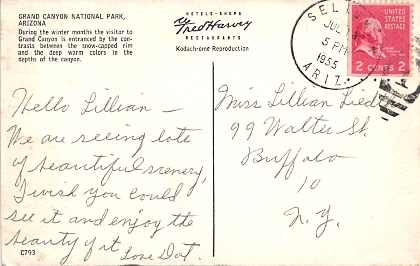 GRAND CANYON NATIONAL PARK,
ARIZONA
During the winter months the visitor to
Grand Canyon is entranced by the con-
trasts between the snow-capped rim
and the deep warm colors in the
depths of the canyon.
HOTELS - SHOPS
Fred Harvey
RESTAURANTS
Kodachrome Reproduction
SELI
JUL
5 PM
1955
ARIZ.
UNITED STATES
POSTAGE
2 CENTS 2
Hello Lillian —
We are seeing lots
of beautiful scenery,
I wish you could
see it and enjoy the
beauty of it Love Dot.
C793
Miss Lillian
99 Walter St.
Buffalo
10
N.Y.